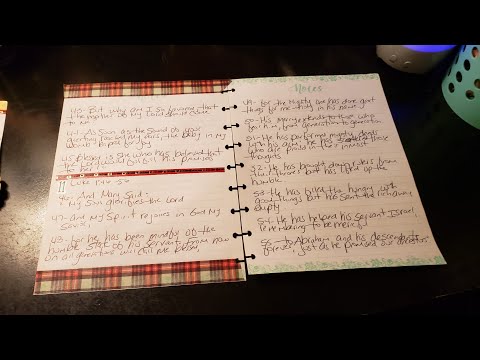 43- But why am I so favored, that
the mother of my Lord should come
44- As soon as the sound of your
greeting reached my ears, the baby in my
womb leaped for joy
45- Blessed is she who has believed that
the Lord would fulfill his promises
to her
Luke 1:46-56
46- And Mary Said:
My Soul glorifies the Lord
47- and my Spirit rejoices in God my
Savior,
48- for he has been mindful of the
humble state of his servant. From now
on all generations will call me blessed,
Notes
49- for the Mighty One has done great
things for me - holy is his name
50- His mercy extends to those who
fear him, from generation to generation
51- He has performed mighty deeds
with his arm; he has scattered those
who are proud in their inmost
thoughts
52- He has brought down rulers from
their thrones but has lifted up the
humble
53- He has filled the hungry with
good things but has sent the rich away
empty
54- He has helped his servant Israel,
remembering to be merciful
55- To Abraham and his descendants
forever, just as he promised our ancestors